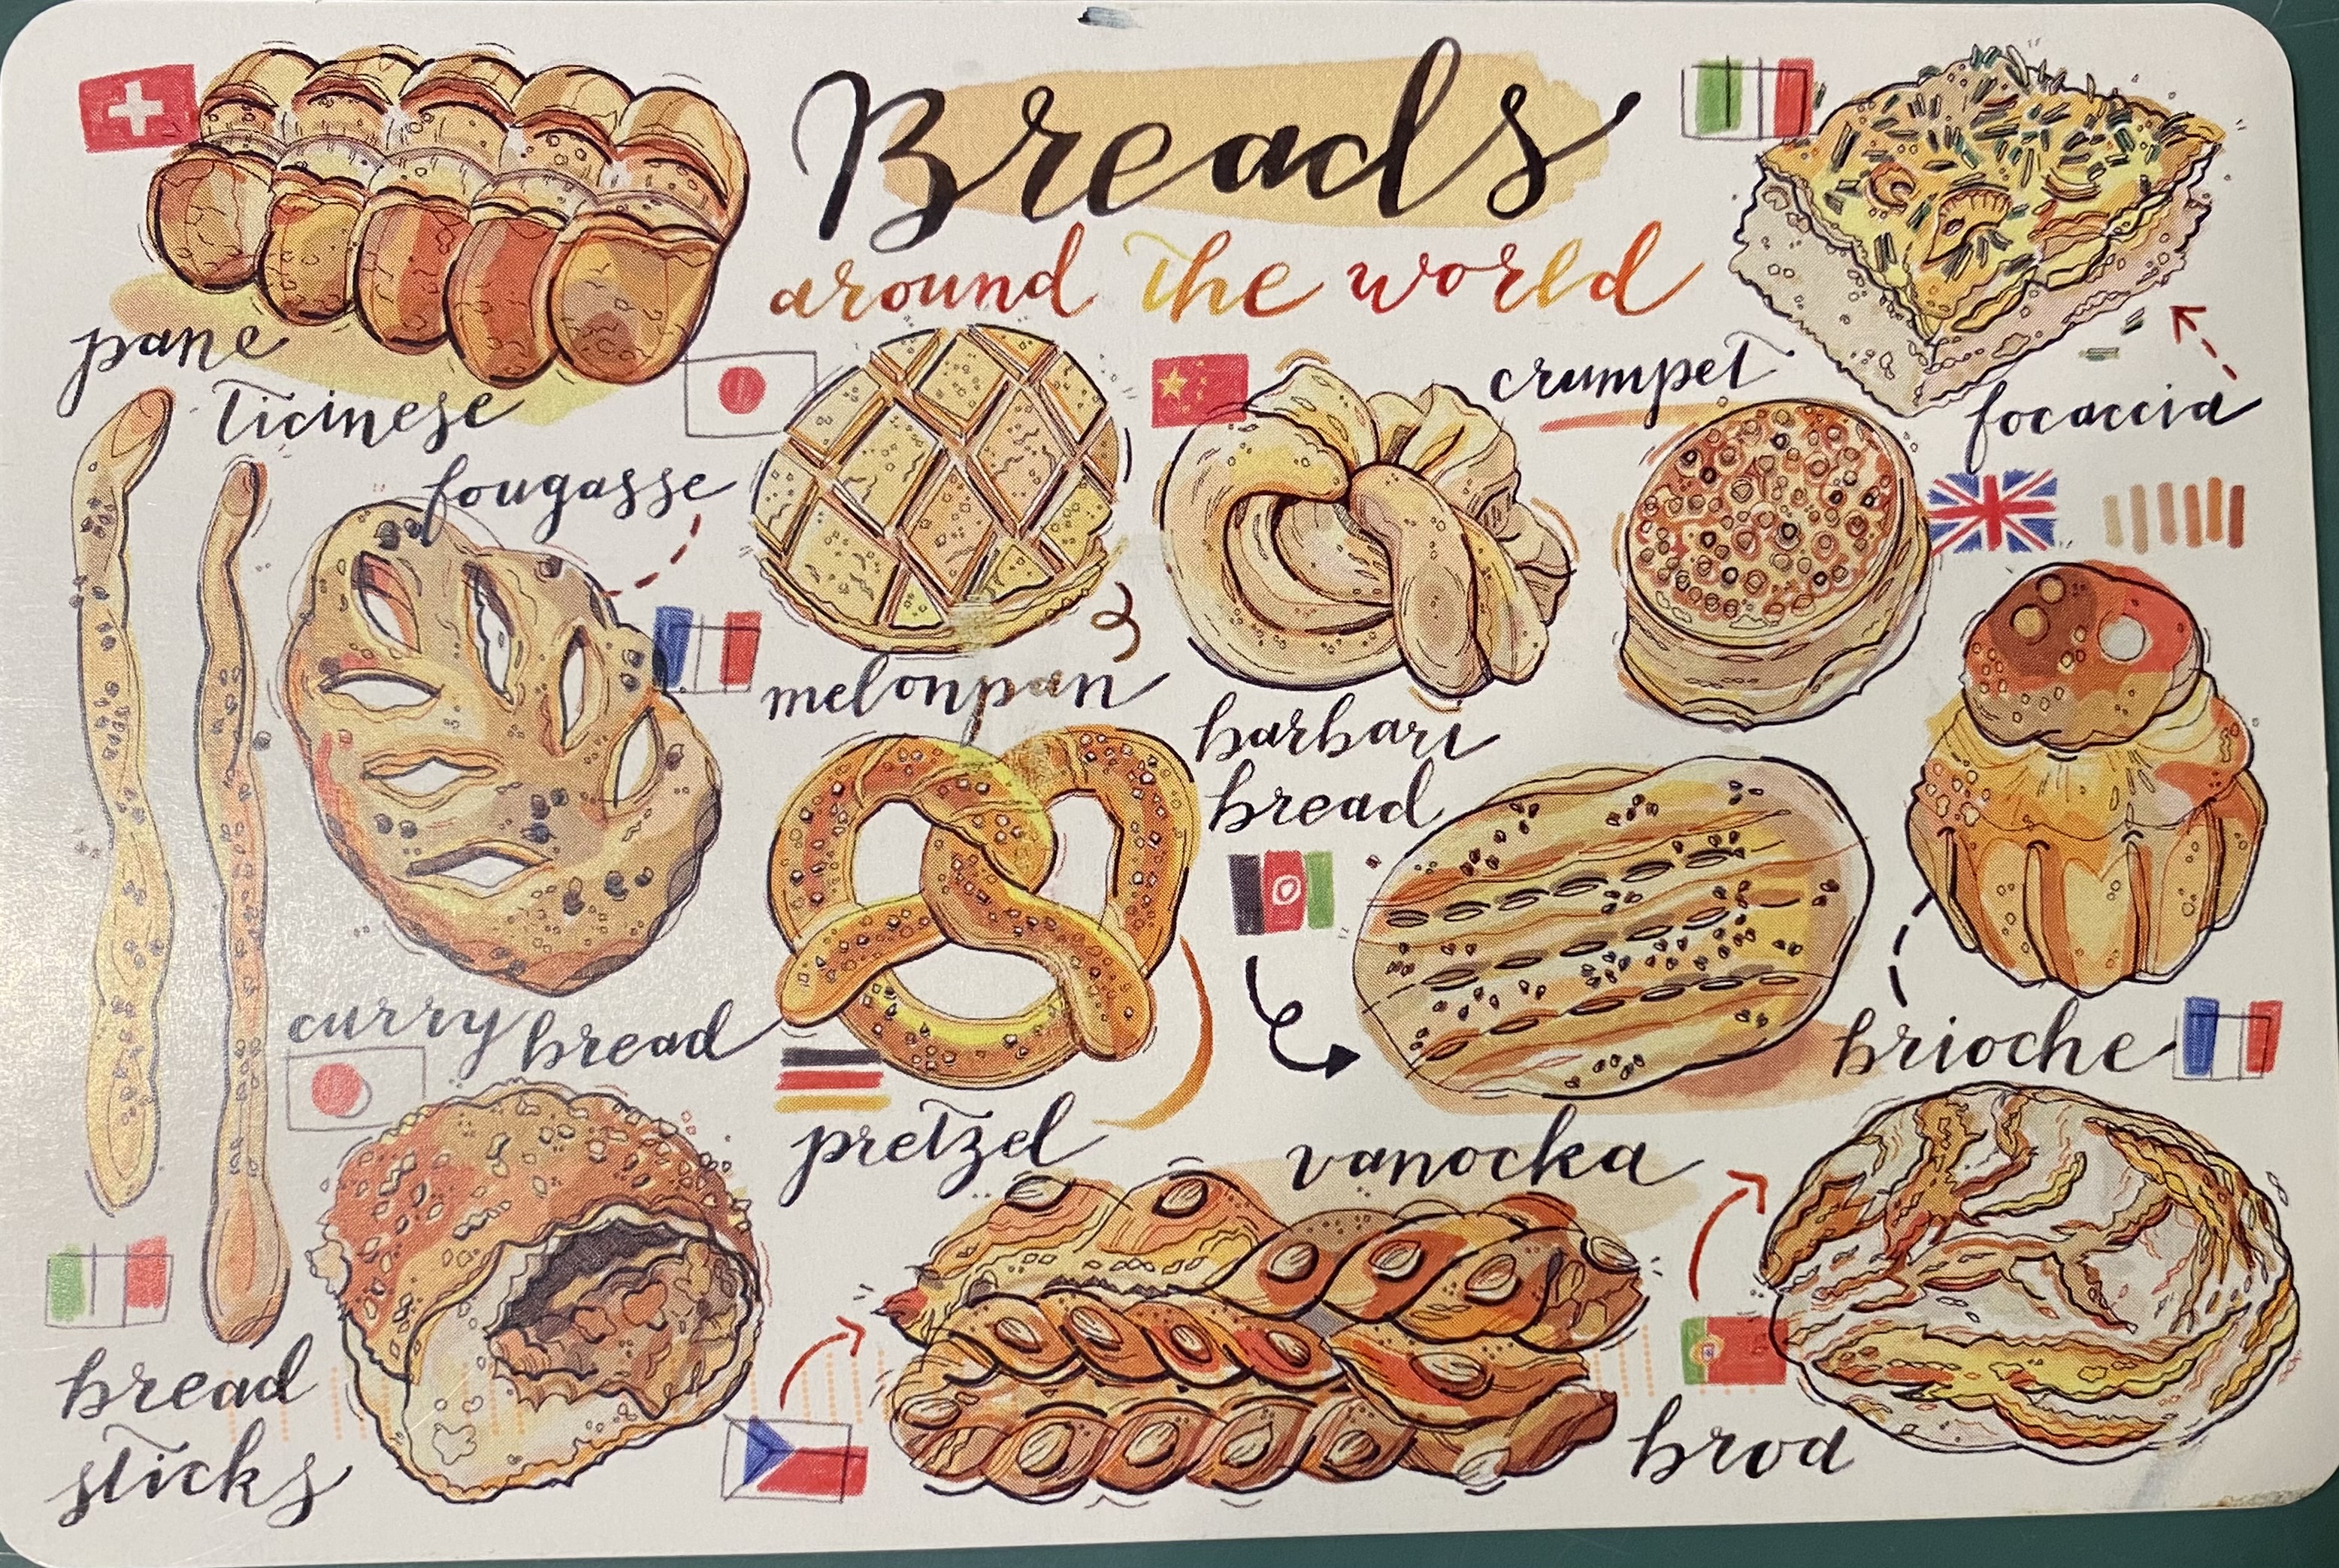 Breads
around the world
pane
ticinese
fougasse
melonpan
crumpet
focaccia
barbari
bread
curry bread
pretzel
brioche
vanocka
bread
sticks
brod